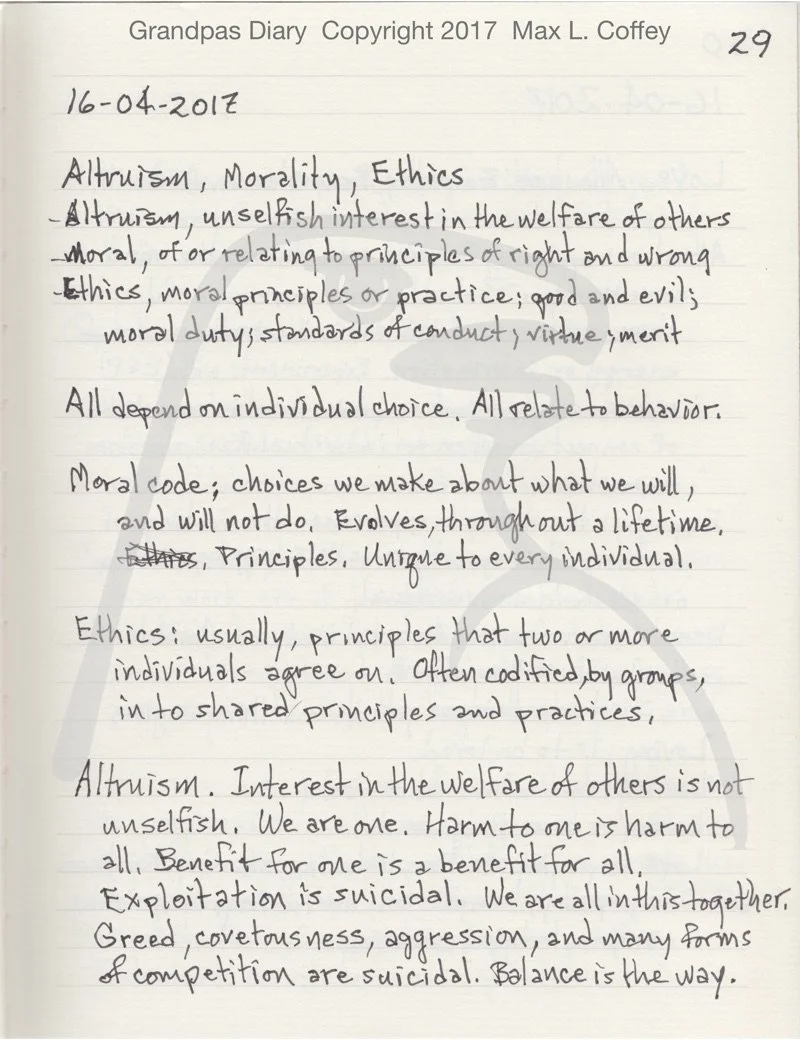 Grandpas Diary Copyright 2017 Max L. Coffey
29
16-04-2017
Altruism, Morality, Ethics
-Altruism, unselfish interest in the welfare of others
-Moral, of or relating to principles of right and wrong
-Ethics, moral principles or practice; good and evil;
moral duty; standards of conduct; virtue; merit
All depend on individual choice. All relate to behavior.
Moral code; choices we make about what we will,
and will not do. Evolves, throughout a lifetime.
Ethics, Principles. Unique to every individual.
Ethics: usually, principles that two or more
individuals agree on. Often codified, by groups,
in to shared principles and practices.
Altruism. Interest in the welfare of others is not
unselfish. We are one. Harm to one is harm to
all. Benefit for one is a benefit for all.
Exploitation is suicidal. We are all in this together.
Greed, covetousness, aggression, and many forms
of competition are suicidal. Balance is the way.